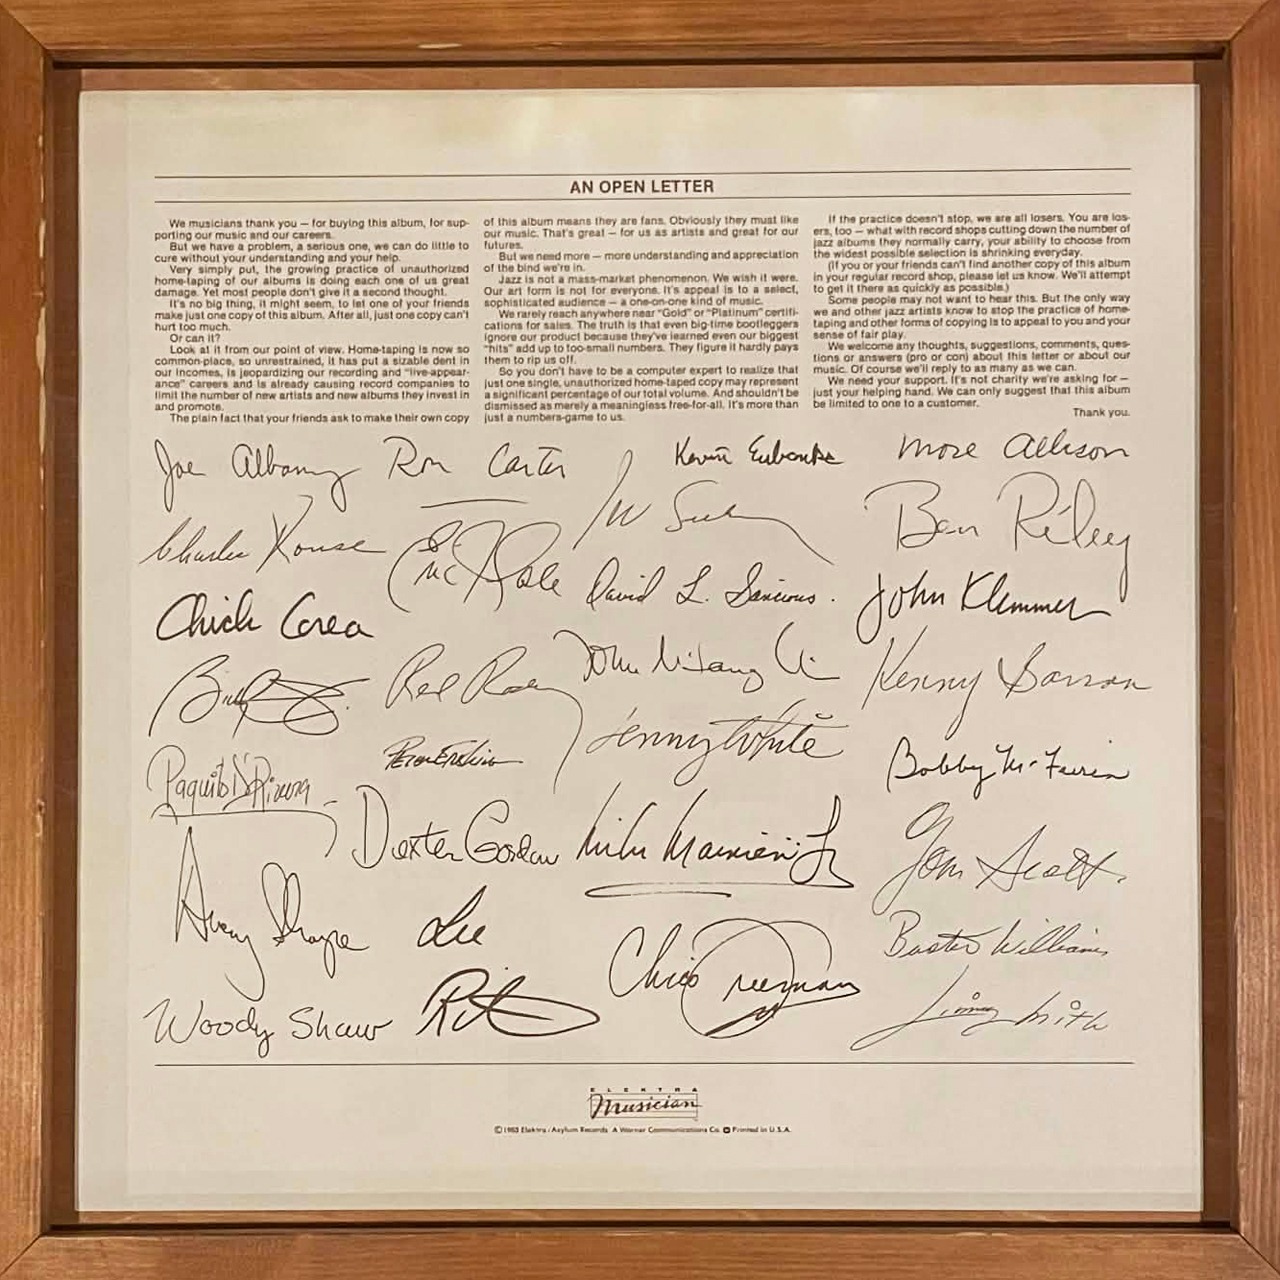 AN OPEN LETTER
We musicians thank you — for buying this album, for sup-
porting our music and our careers.
But we have a problem, a serious one, we can do little to
cure without your understanding and your help.
Very simply put, the growing practice of unauthorized
home-taping of our albums is doing each one of us great
damage. Yet most people don't give it a second thought.
It's no big thing, it might seem, to let one of your friends
make just one copy of this album. After all, just one copy can't
hurt too much.
Or can it?
Look at it from our point of view. Home-taping is now so
common-place, so unrestrained, it has put a sizable dent in
our incomes, is jeopardizing our recording and "live-appear-
ance" careers and is already causing record companies to
limit the number of new artists and new albums they invest in
and promote.
The plain fact that your friends ask to make their own copy
of this album means they are fans. Obviously they must like
our music. That's great — for us as artists and great for our
futures.
But we need more — more understanding and appreciation
of the bind we're in.
Jazz is not a mass-market phenomenon. We wish it were.
Our art form is not for everyone. It's appeal is to a select,
sophisticated audience — a one-on-one kind of music.
We rarely reach anywhere near "Gold" or "Platinum" certifi-
cations for sales. The truth is that even big-time bootleggers
ignore our product because they've learned even our biggest
"hits" add up to too-small numbers. They figure it hardly pays
them to rip us off.
So you don't have to be a computer expert to realize that
just one single, unauthorized home-taped copy may represent
a significant percentage of our total volume. And shouldn't be
dismissed as merely a meaningless free-for-all. It's more than
just a numbers-game to us.
If the practice doesn't stop, we are all losers. You are los-
ers, too — what with record shops cutting down the number of
jazz albums they normally carry, your ability to choose from
the widest possible selection is shrinking everyday.
(If you or your friends can't find another copy of this album
in your regular record shop, please let us know. We'll attempt
to get it there as quickly as possible.)
Some people may not want to hear this. But the only way
we and other jazz artists know to stop the practice of home-
taping and other forms of copying is to appeal to you and your
sense of fair play.
We welcome any thoughts, suggestions, comments, ques-
tions or answers (pro or con) about this letter or about our
music. Of course we'll reply to as many as we can.
We need your support. It's not charity we're asking for —
just your helping hand. We can only suggest that this album
be limited to one to a customer.
Thank you.
Joe Albany Ron Carter Kevin Eubanks Mose Allison
Charlie Rouse Ben Riley
David L. Sancious. John Klemmer
Chick Corea
Red Rodney Kenny Barron
Lenny White
Paquito D'Rivera Peter Erskine Bobby McFerrin
Dexter Gordon Mike Mainieri Jr Tom Scott
Avery Sharpe Lee Buster Williams
Rit Chico Freeman
Woody Shaw Jimmy Smith
ELEKTRA
Musician
© 1983 Elektra / Asylum Records A Warner Communications Co. Printed in U.S.A.